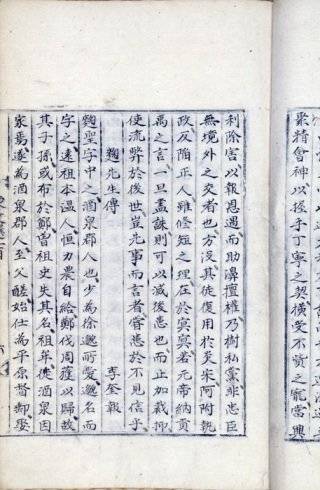 聚精會神以握手丁寧之契橫受不貲之寵當興
利除害以報恩遇而助濞擅權乃樹私黨非忠臣
無境外之交者也方沒其徒復用於炎宋阿附執
政反陷正人雖脩短之理在於冥冥若元帝納貢
禹之言一旦盡誅則可以減後患也而止加裁抑
使流弊於後世豈先事而言者嘗患於不見信乎
麴先生傳 李奎報
麴聖字中之酒泉郡人也少爲徐邈所愛邈名而
字之遠祖本溫人恒力農自給鄭伐周獲以歸故
其子孫或布於鄭曾祖史失其名祖牟徙酒泉因
家焉遂爲酒泉郡人至父醝始仕爲平原督郵娶